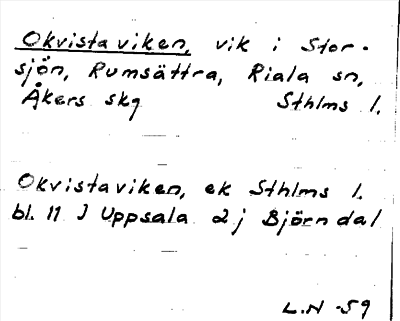 Okvistaviken, vik i Stor-
sjön, Rumsättra, Riala sn,
Åkers skg Sthlms l.
Okvistaviken, ek Sthlms l.
bl. 11 J Uppsala 2 j Björndal
L.N -59